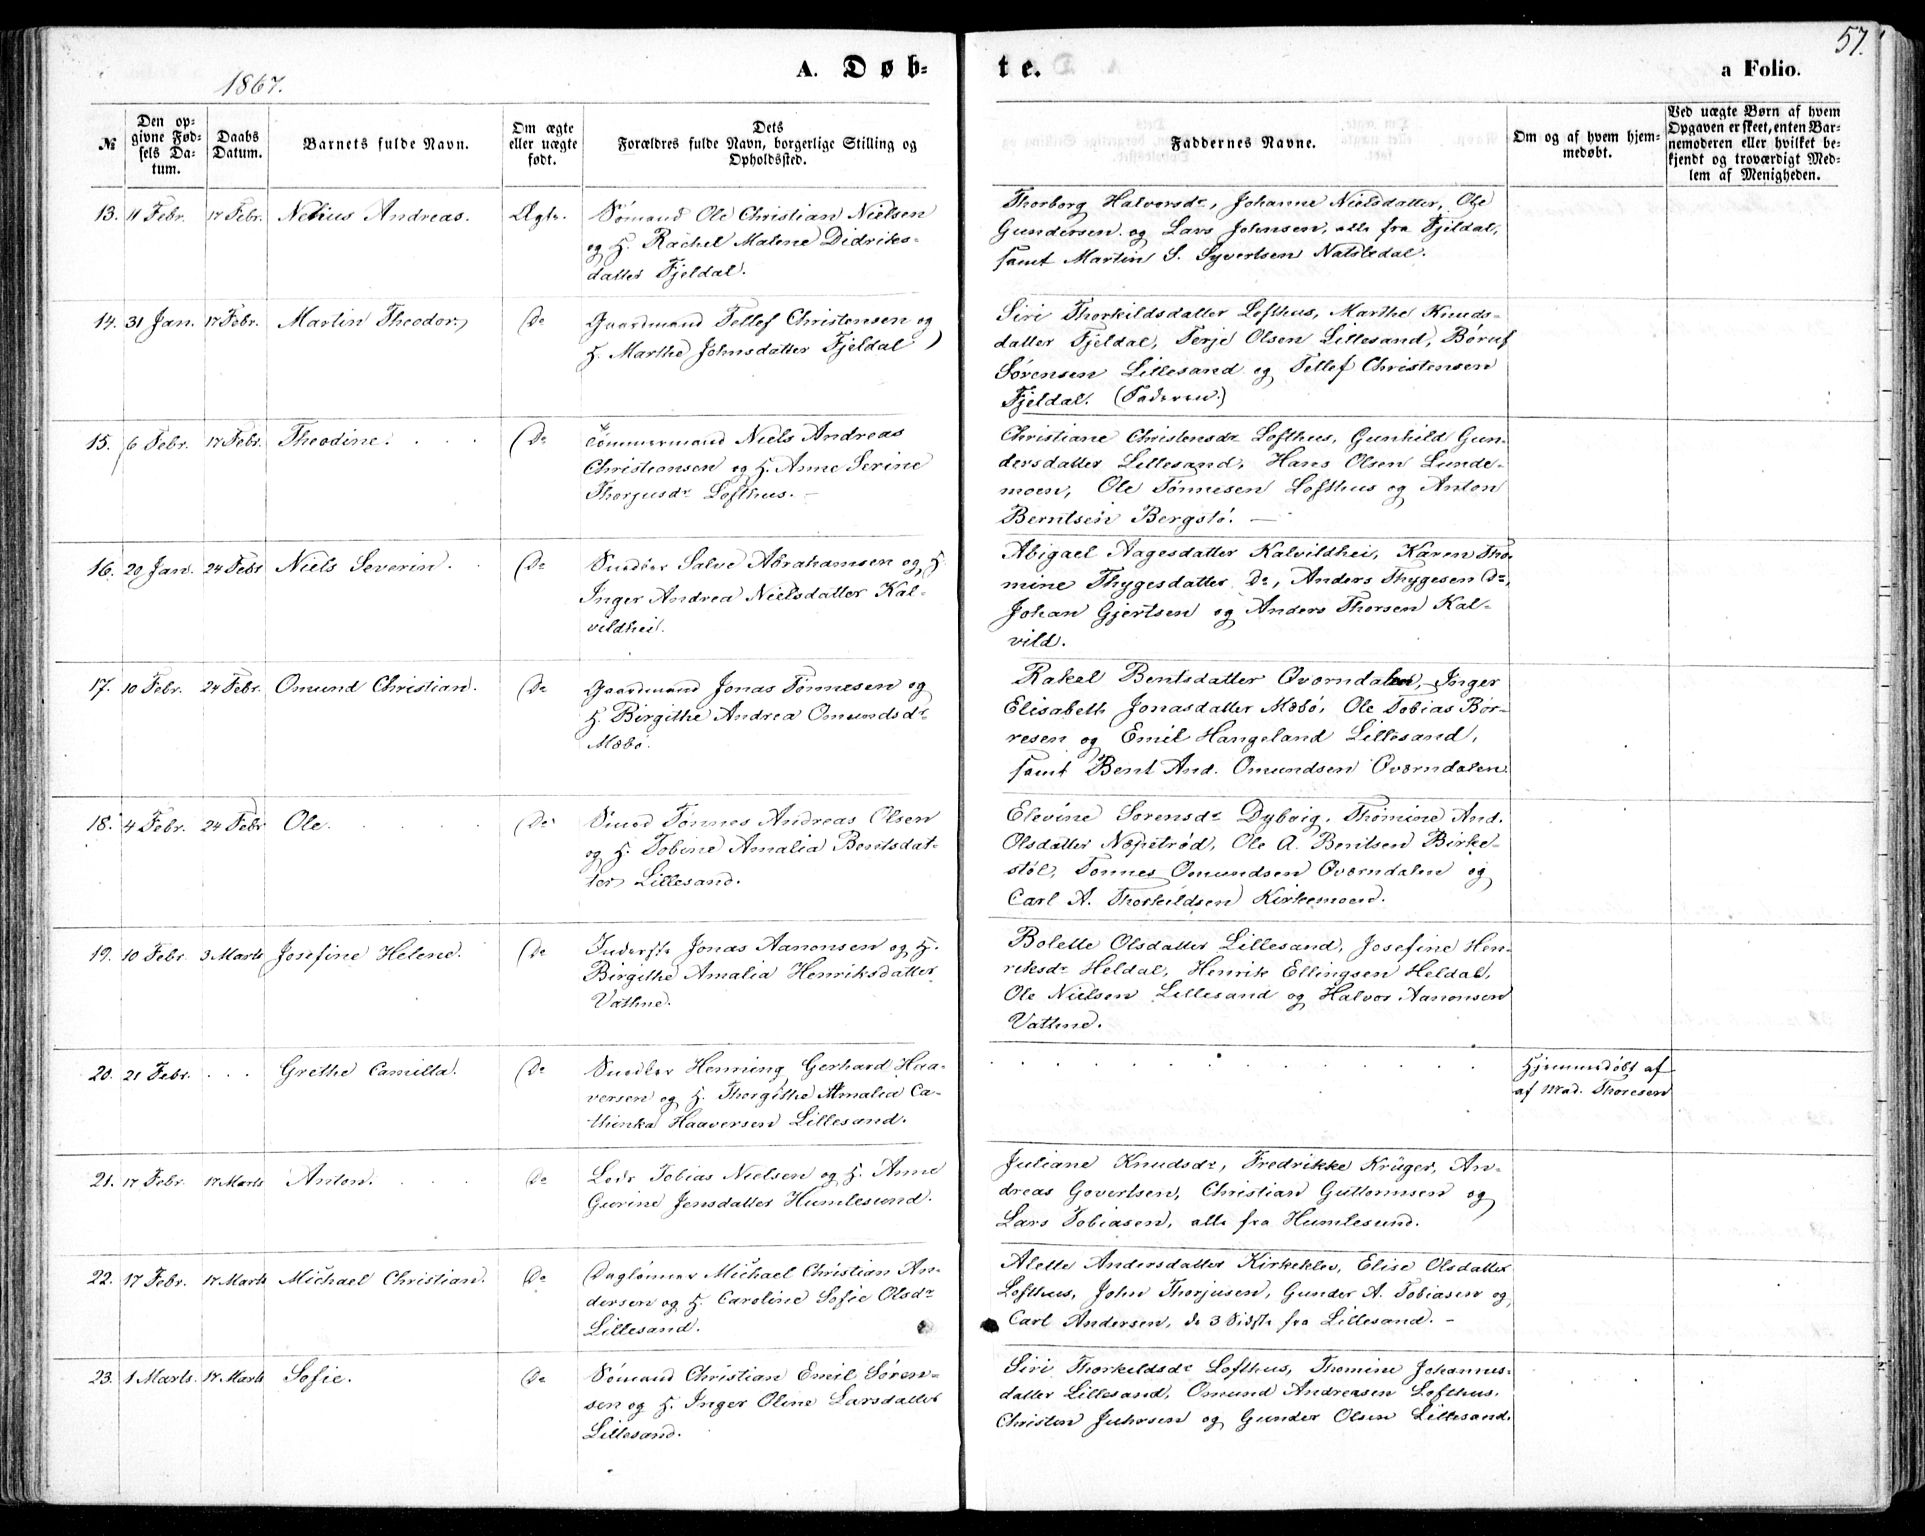 57.
1867.
A. Døb-
te.
a Folio.
№
Den op-
givne Fød-
sels Da-
tum.
Daabs
Datum.
Barnets fulde Navn.
Om ægte
eller uægte
født.
Dets
Forældres fulde Navn, borgerlige Stilling og
Opholdssted.
Faddernes Navne.
Om og af hvem hjem-
medøbt.
Ved uægte Børn af hvem
Opgaven er skeet, enten Bar-
nemoderen eller hvilket be-
kjendt og troværdigt Med-
lem af Menigheden.
13. 11 Febr. 17 Febr. Nelius Andreas. Ægte.
Sømand Ole Christian Nielsen
og H. Rachel Malene Didriks-
datter Fjeldal.
Thorborg Halvorsdr, Johanne Nielsdatter, Ole
Gundersen og Lars Johnsen, alle fra Fjeldal,
samt Martin S. Syvertsen Natsledal.
14. 31 Jan. 17 Febr. Martin Theodor. Do
Gaardmand Tellef Christensen og
H. Marthe Johnsdatter Fjeldal
Siri Thorkildsdatter Lofthus, Marthe Knuds-
datter Fjeldal, Terje Olsen Lillesand, Børuf
Sørensen Lillesand og Tellef Christensen
Fjeldal. (Faderen.)
15. 6 Febr. 17 Febr. Theodine. Do
Tømmermand Niels Andreas
Christiansen og H. Anne Serine
Thorjusdr Lofthus. –
Christiane Christensdr Lofthus, Gunhild Gun-
dersdatter Lillesand, Hans Olsen Lunde-
moen, Ole Tønnesen Lofthus og Anton
Berntsen Bergstø. —
16. 20 Jan. 24 Febr Niels Severin. Do
Snedker Salve Abrahamsen og H.
Inger Andrea Nielsdatter Kal-
vildhei.
Abigael Aagesdatter Kalvildhei, Karen Tho-
mine Thygesdatter Do, Anders Thygesen Do,
Johan Gjertsen og Anders Thorsen Kal-
vild.
17. 10 Febr. 24 Febr. Omund Christian. Do
Gaardmand Jonas Tønnesen og
H. Birgithe Andrea Omundsdr
Mæbø.
Rakel Bentsdatter Oværndalen, Inger
Elisabeth Jonasdatter Mæbø, Ole Tobias Bør-
resen og Emil Hangeland Lillesand,
samt Bent And. Omundsen Oværndalen
18. 4 Febr. 24 Febr Ole. Do
Smed Tønnes Andreas Olsen
og H. Tobine Amalia Bentsdat-
ter Lillesand.
Elevine Sørensdr Dybvig, Thomine And.
Olsdatter Næpetrød, Ole A. Bentsen Birke-
støl, Tønnes Omundsen Oværndalen og
Carl A. Thorkildsen Kirkemoen.
19. 10 Febr. 3 Marts Josefine Helene. Do
Inderste Jonas Aanonsen og H.
Birgithe Amalia Henriksdatter
Vathne.
Bolette Olsdatter Lillesand, Josefine Hen-
riksdr Heldal, Henrik Ellingsen Heldal,
Ole Nielsen Lillesand og Halvor Aanonsen
Vathne.
20. 21 Febr. Grethe Camilla. Do
Snedker Henning Gerhard Haa-
versen og H. Thorgithe Amalia Ca-
thinka Haaversen Lillesand.
Hjemmedøbt af
af Mad. Thoresen
21. 17 Febr. 17 Marts Anton. Do
Lods Tobias Nielsen og H. Anne
Gurine Jensdatter Humlesund.
Juliane Knudsdr, Fredrikke Krüger, An-
dreas Govertsen, Christian Guttormsen og
Lars Tobiasen, alle fra Humlesund.
22. 17 Febr. 17 Marts Michael Christian. Do
Daglønner Michael Christian An-
dersen og H. Caroline Sofie Olsdr
Lillesand.
Alette Andersdatter Kirkeklev, Elise Olsdatter
Lofthus, John Thorjusen, Gunder A. Tobiasen og
Carl Andersen, de 3 Sidste fra Lillesand. –
23. 1 Marts. 17 Marts Sofie. Do
Sømand Christian Emil Søren-
sen og H. Inger Oline Larsdatter
Lillesand.
Siri Thorkildsdr Lofthus, Thomine Johannes-
datter Lillesand, Omund Andreasen Lofthus,
Christen Juhrsen og Gunder Olsen Lillesand.